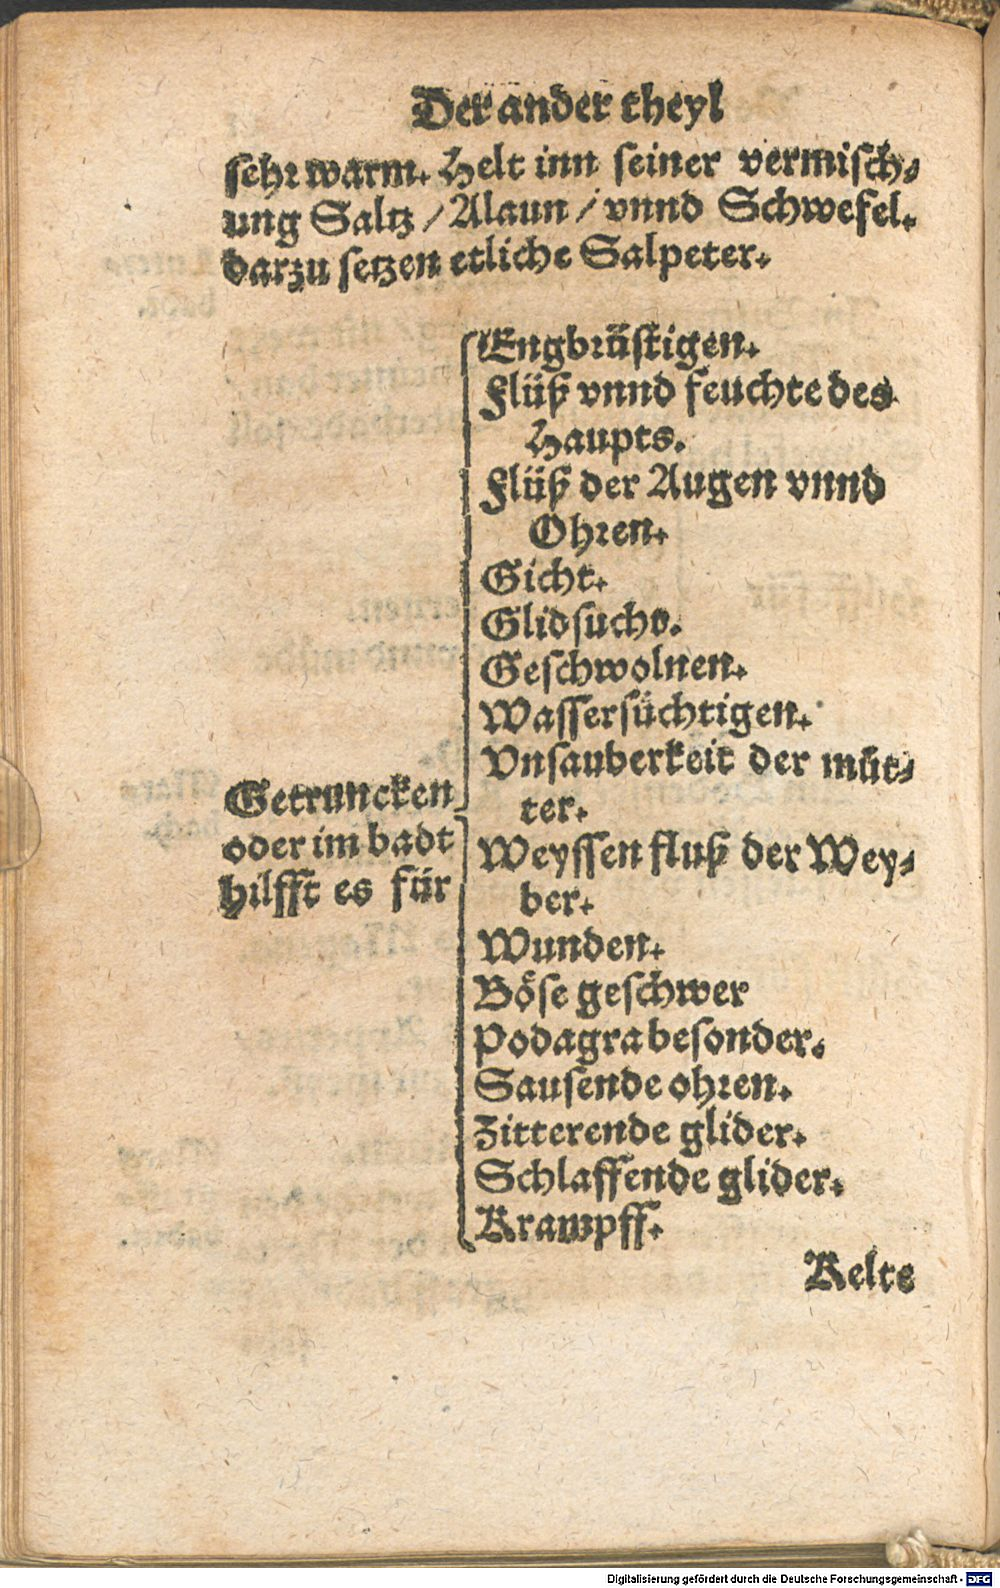 Der ander theyl
sehr warm. Helt inn seiner vermisch⸗
ung Saltz / Alaun / vnnd Schwefel.
darzu setzen etliche Salpeter.
Engbrüstigen.
Flüß vnnd feuchte des
Haupts.
Flüß der Augen vnnd
Ohren.
Gicht.
Glidsucht.
Geschwolnen.
Wassersüchtigen.
Vnsauberkeit der müt⸗
ter.
Getruncken
oder im badt
hilfft es für
Weyssen fluß der Wey⸗
ber.
Wunden.
Böse geschwer
Podagra besonder.
Sausende ohren.
Zitterende glider.
Schlaffende glider.
Krampff.
Kelte
Digitalisierung gefördert durch die Deutsche Forschungsgemeinschaft - DFG